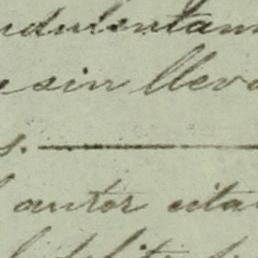 ndulentam
e sin lleva
s.
l autor cita